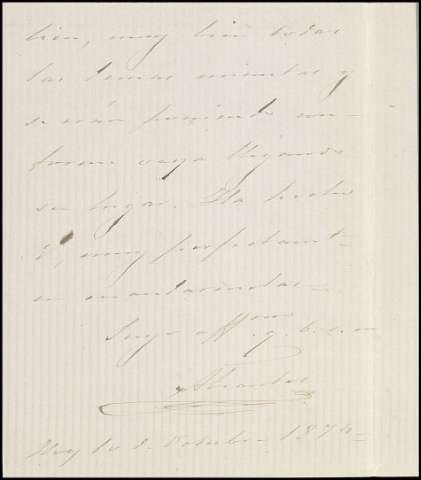 bien, muy bien todas
las demas minutas y
se irán poniendo con-
forme vaya llegando
su lugar. Ha hecho
V, muy perfectamte
en mandarmelas.
Suyo affmo q. b. s. m
Hoy 10 d. Octubre 1874